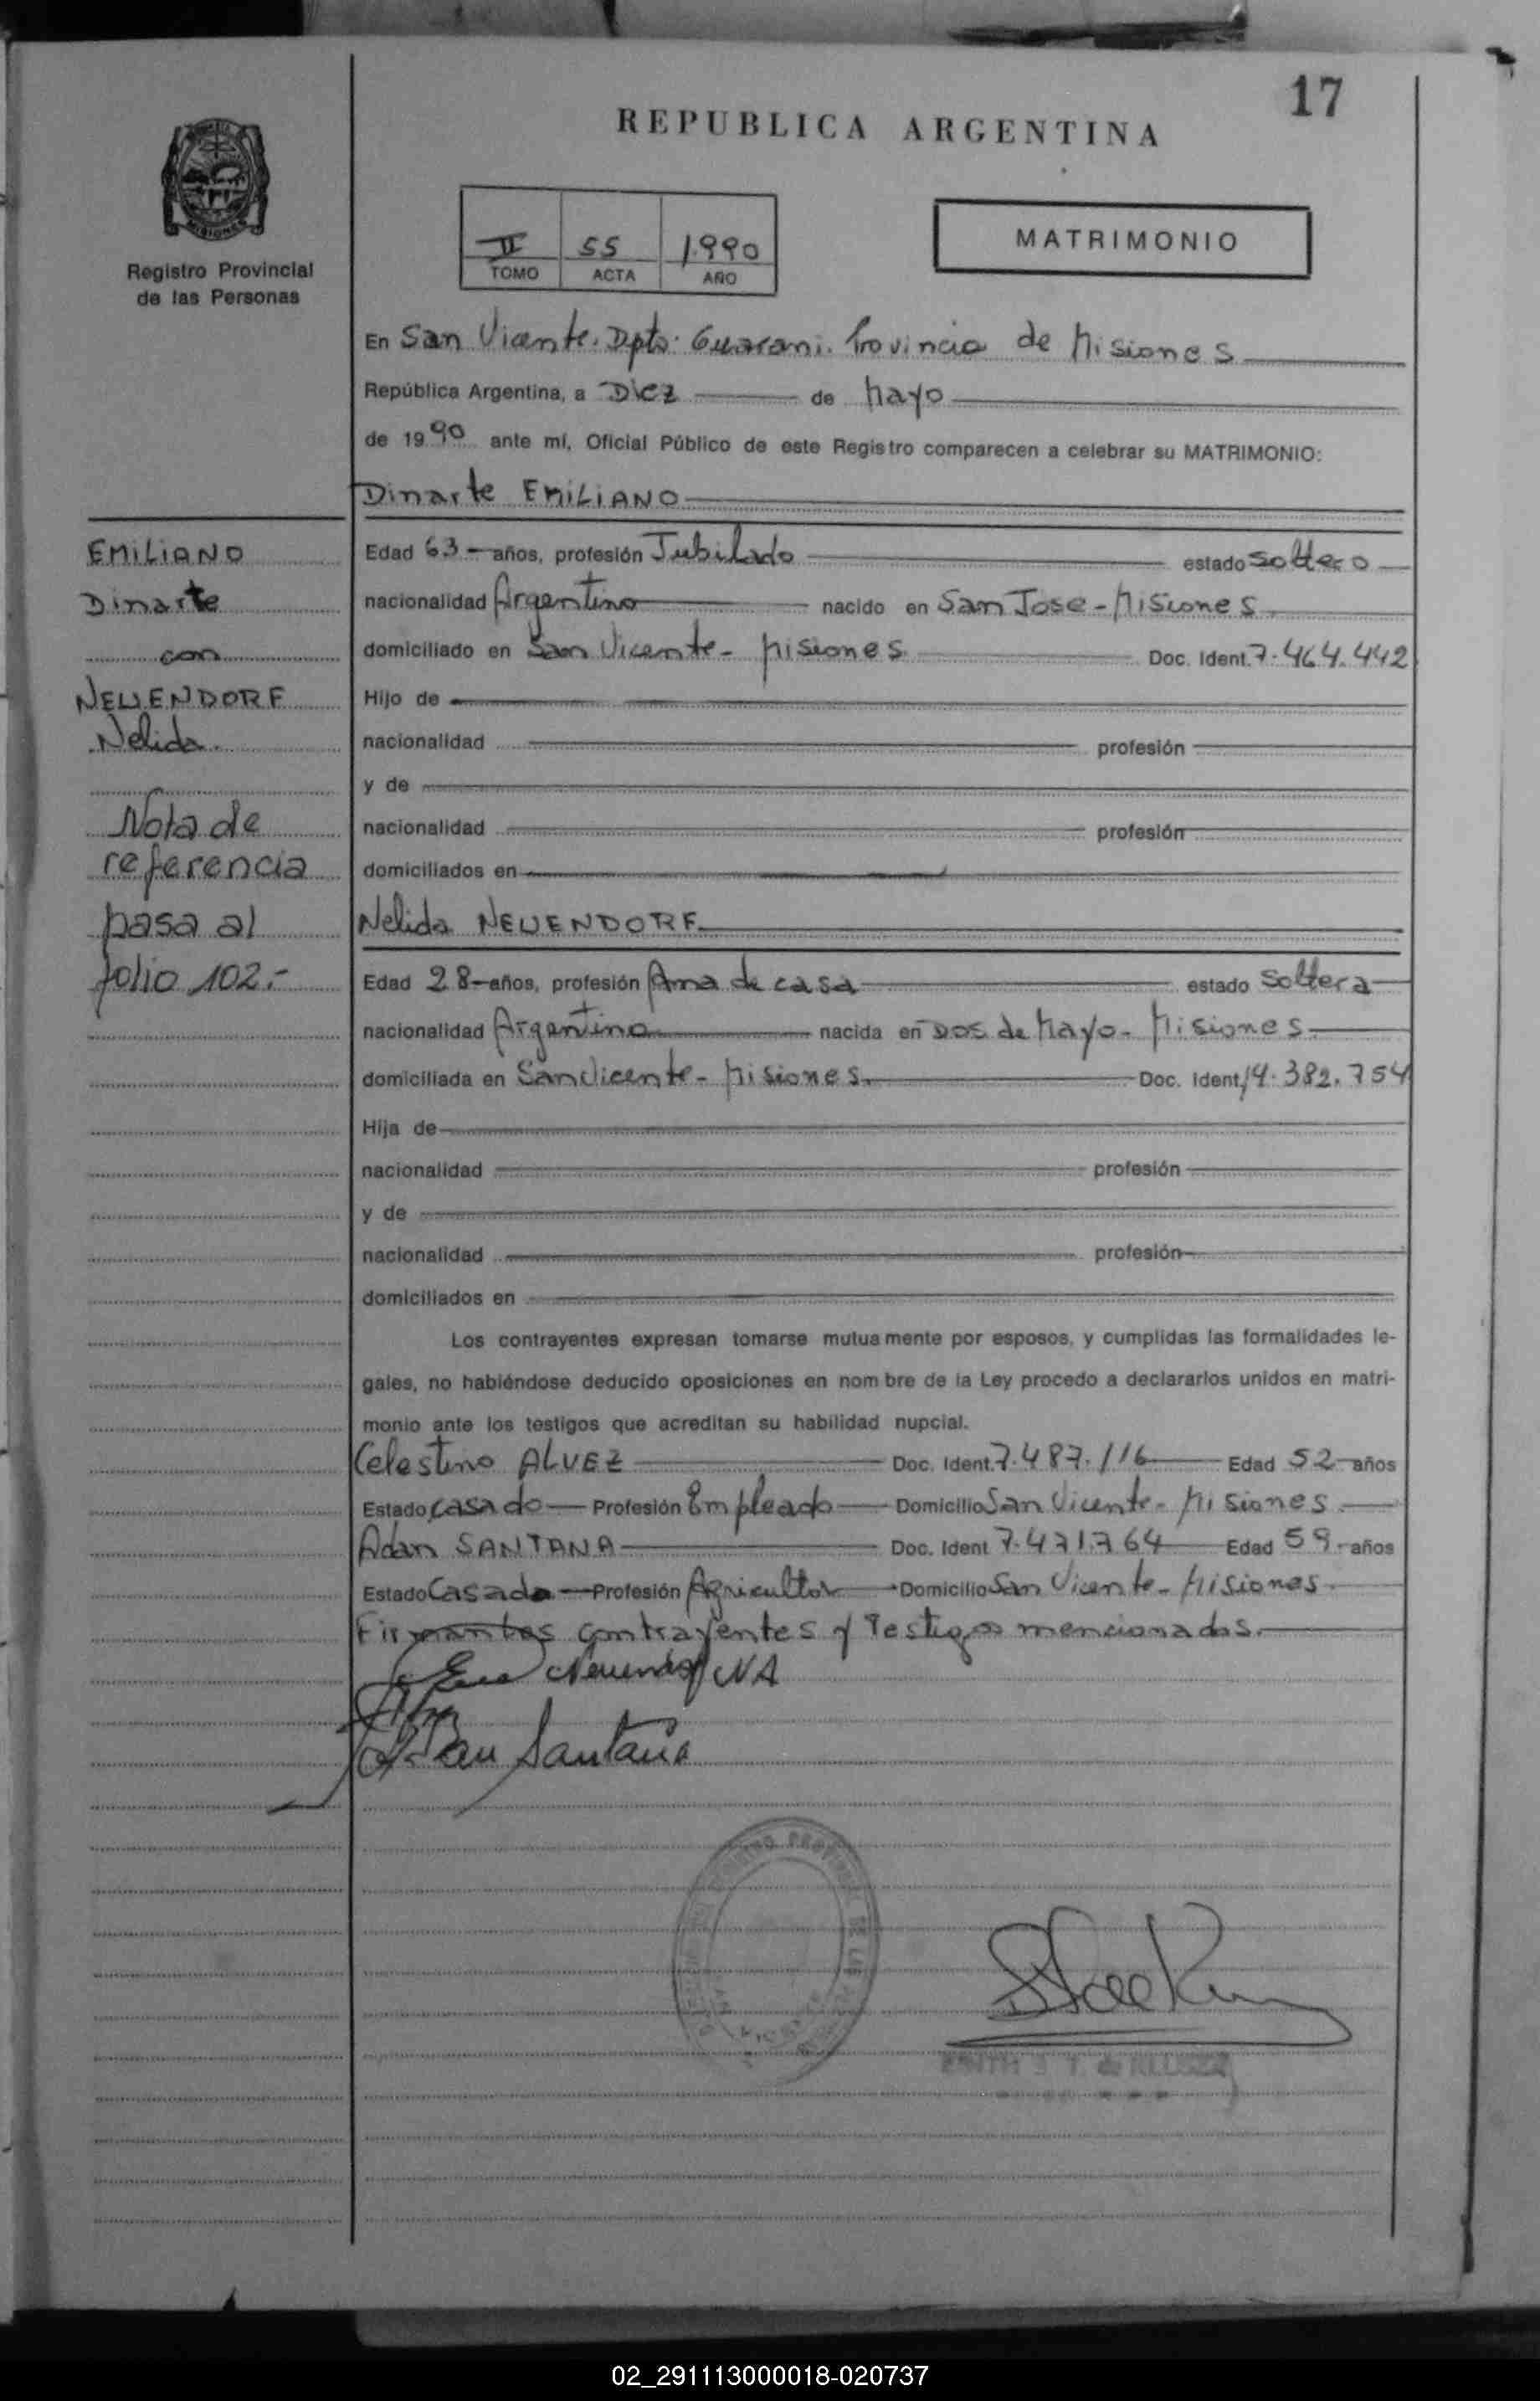 17
REPUBLICA ARGENTINA
II 55 1.990
TOMO ACTA AÑO
MATRIMONIO
MISIONES
Registro Provincial
de las Personas
En San Vicente. Dpto: Guarani. Provincia de Misiones
República Argentina, a Diez de Mayo
de 1990 ante mí, Oficial Público de este Registro comparecen a celebrar su MATRIMONIO:
Dinarte EMILIANO
Edad 63 años, profesión Jubilado estado soltero
nacionalidad Argentino nacido en San Jose - Misiones
domiciliado en San Vicente - Misiones Doc. Ident. 7.464.442
Hijo de
nacionalidad profesión
y de
nacionalidad profesión
domiciliados en
Nelida NEUENDORF
Edad 28 años, profesión Ama de casa estado Soltera
nacionalidad Argentina nacida en Dos de Mayo - Misiones
domiciliada en San Vicente - Misiones Doc. Ident. 14.382.754
Hija de
nacionalidad profesión
y de
nacionalidad profesión
domiciliados en
Los contrayentes expresan tomarse mutuamente por esposos, y cumplidas las formalidades le-
gales, no habiéndose deducido oposiciones en nombre de la Ley procedo a declararlos unidos en matri-
monio ante los testigos que acreditan su habilidad nupcial.
Celestino ALVEZ Doc. Ident. 7.487.116 Edad 52 años
Estado Casado Profesión Empleado Domicilio San Vicente - Misiones
Adan SANTANA Doc. Ident 7.471.764 Edad 59 años
Estado Casado Profesión Agricultor Domicilio San Vicente - Misiones
Firmantes contrayentes y Testigos mencionados.
Adan Santana
EMILIANO
Dinarte
con
NEUENDORF
Nelida.
Nota de
referencia
pasa al
folio 102.-
02_291113000018-020737